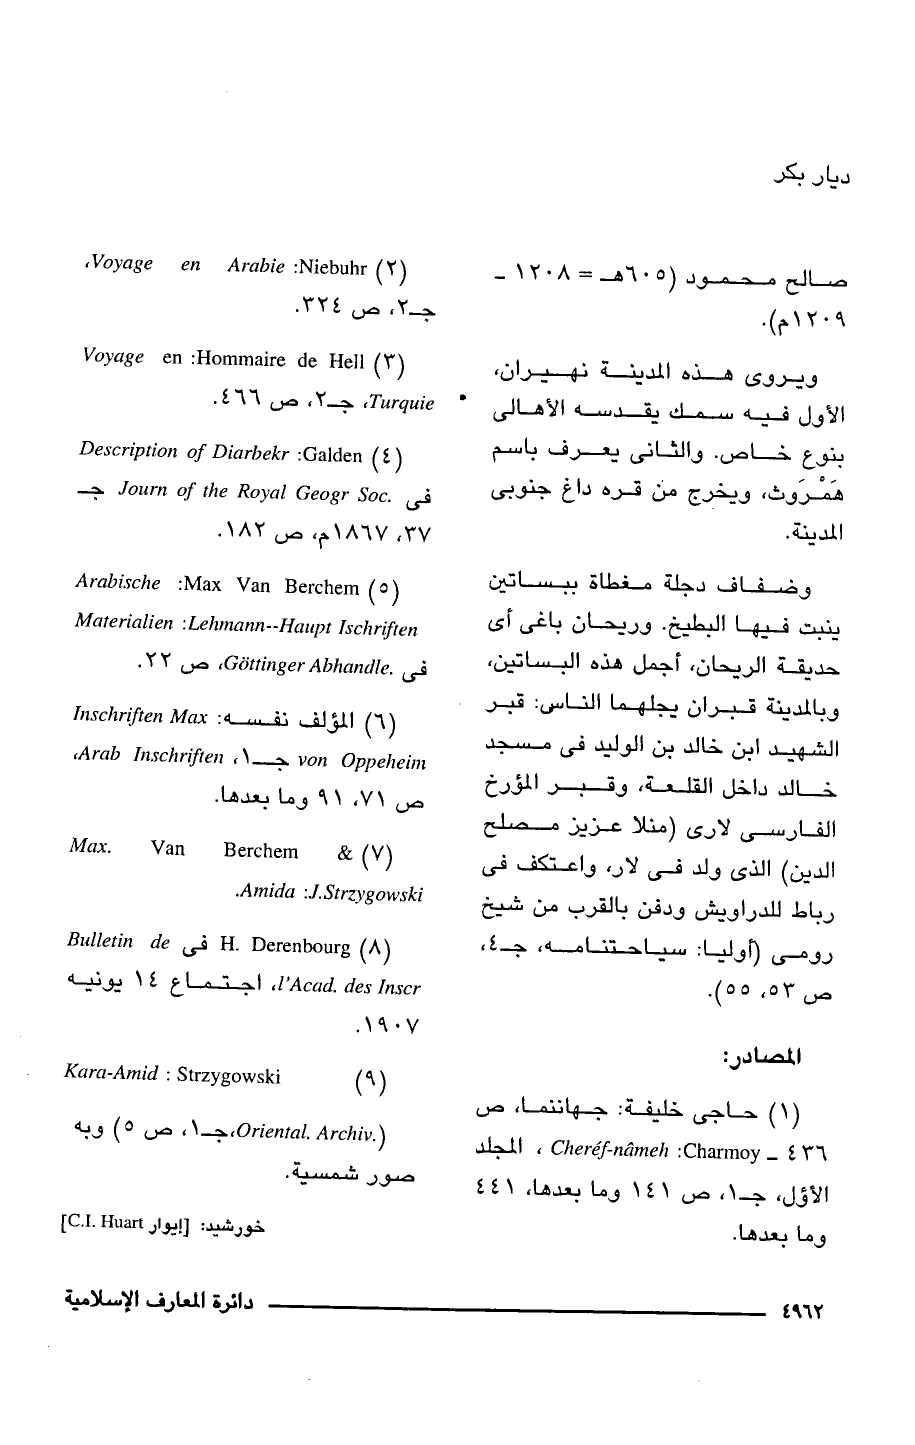 ديار بكر
صالح محمود (٦٠٥هـ = ١٢٠٨ ـ
١٢٠٩م).
ويروى هذه المدينة نهيران،
الأول فيه سمك يقدسه الأهالى
بنوع خاص. والثانى يعرف باسم
هَمْرَوت، ويخرج من قره داغ جنوبى
المدينة.
وضفاف دجلة مغطاة ببساتين
ينبت فيها البطيخ. وريحان باغى أى
حديقة الريحان، أجمل هذه البساتين،
وبالمدينة قبران يجلهما الناس: قبر
الشهيد ابن خالد بن الوليد فى مسجد
خالد داخل القلعة، وقبر المؤرخ
الفارسى لارى (منلا عزيز مصلح
الدين) الذى ولد فى لار، واعتكف فى
رباط للدراويش ودفن بالقرب من شيخ
رومى (أوليا: سياحتنامه، جـ٤،
ص ٥٣، ٥٥).
المصادر:
(١) حاجى خليفة: جهاننما، ص
٤٣٦ ـ Charmoy: Cheréf-nâmeh ، المجلد
الأول، جـ١، ص ١٤١ وما بعدها، ٤٤١
وما بعدها.
(٢) Niebuhr: Voyage en Arabie،
جـ٢، ص ٣٢٤.
(٣) Hommaire de Hell: Voyage en
Turquie، جـ٢، ص ٤٦٦.
(٤) Galden: Description of Diarbekr
فى Journ of the Royal Geogr Soc. جـ
٣٧، ١٨٦٧م، ص ١٨٢.
(٥) Max Van Berchem: Arabische
Materialien :Lehmann--Haupt Ischriften
فى Göttinger Abhandle.، ص ٢٢.
(٦) المؤلف نفسه: Inschriften Max
von Oppeheim جـ١، Arab Inschriften،
ص ٧١، ٩١ وما بعدها.
(٧) Max. Van Berchem &
J.Strzygowski: Amida.
(٨) H. Derenbourg فى Bulletin de
l'Acad. des Inscr، اجتماع ١٤ يونيه
١٩٠٧.
(٩) Kara-Amid : Strzygowski
(Oriental. Archiv.،جـ١، ص ٥) وبه
صور شمسية.
خورشيد: [إيوار C.I. Huart]
٤٩٦٢ دائرة المعارف الإسلامية